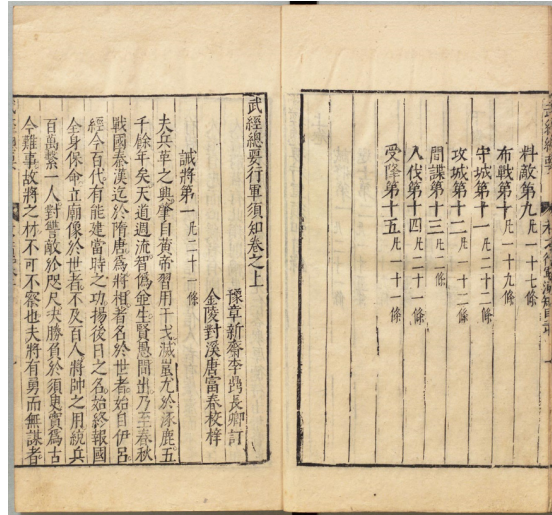 料敵第九凡一十七條
布戰第十凡一十九條
守城第十一凡二十二條
攻城第十二凡一十二條
間諜第十三凡二條
入伐第十四凡二十一條
受降第十五凡一十一條
武經總要行軍須知卷之上
豫章新齋李鼎長卿訂
金陵對溪唐富春校梓
誡將第一凡二十一條
夫兵革之興肇自黃帝習用干戈滅蚩尤於涿鹿五
千餘年矣天道週流智僞僉生賢愚間出乃至春秋
戰國秦漢迄於隋唐爲將相者名於世者始自伊呂
經今百代有能建當時之功揚後日之名始終報國
全身保命立廟像於世者不及百人將帥之用統兵
百萬繫一人對警敵於咫尺決勝負於須臾實爲古
今難事故將之材不可不察也夫將有勇而無謀者